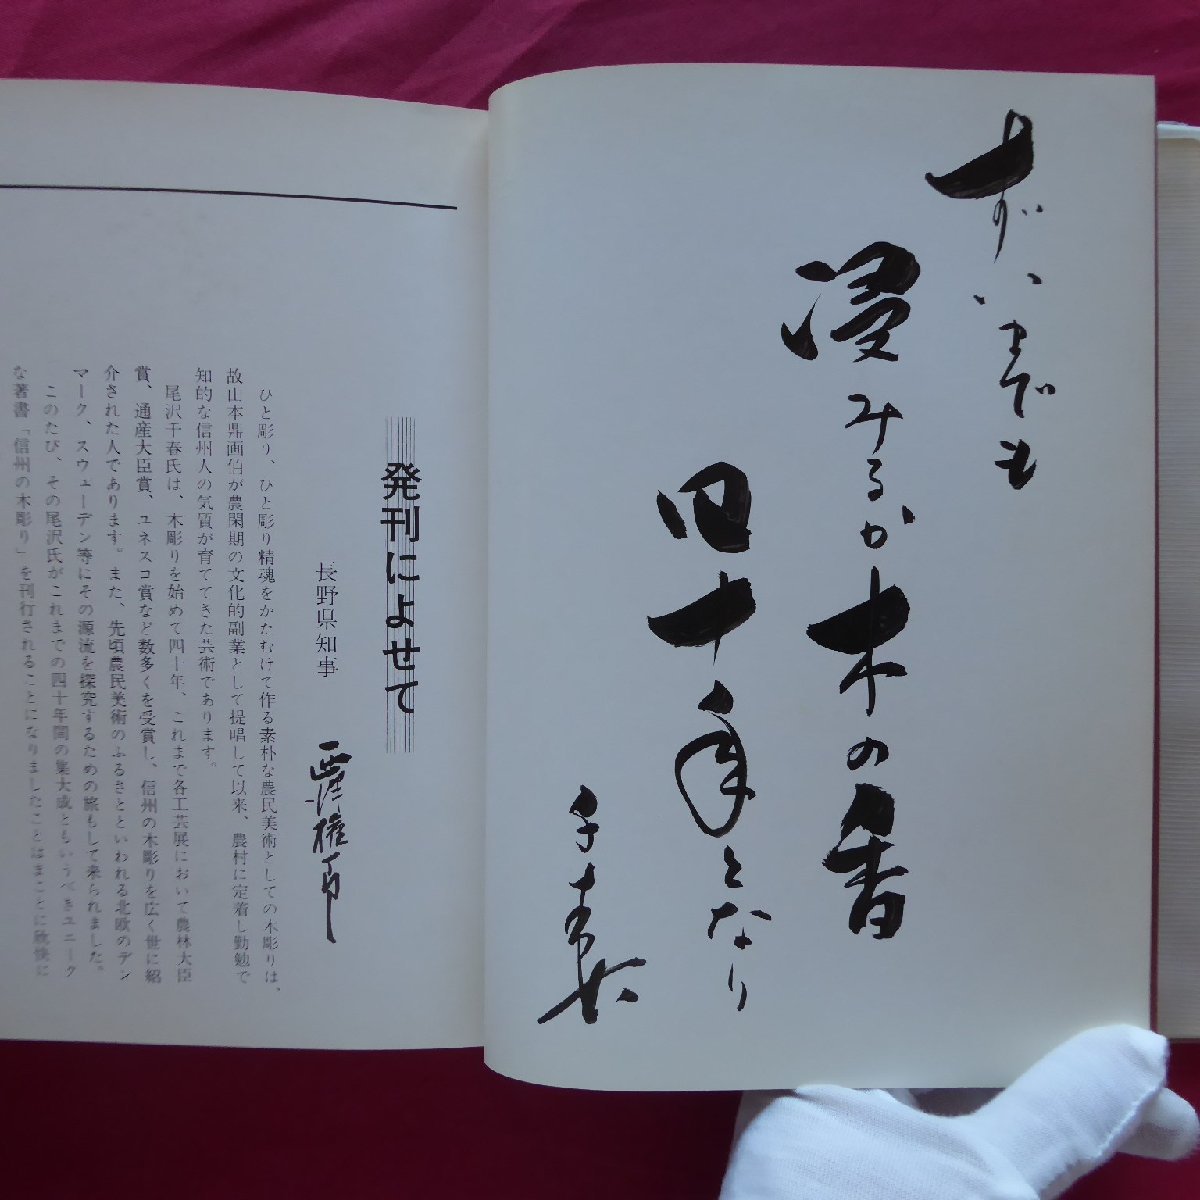 ずいまでも
浸みるか木の香
四十年となり
千春
発刊によせて
長野県知事
西沢権一郎
ひと彫り、ひと彫り精魂をかたむけて作る素朴な農民美術としての木彫りは、
故山本鼎画伯が農閑期の文化的副業として提唱して以来、農村に定着し勤勉で
知的な信州人の気質が育ててきた芸術であります。
尾沢千春氏は、木彫りを始めて四十年、これまで各工芸展において農林大臣
賞、通産大臣賞、ユネスコ賞など数多くを受賞し、信州の木彫りを広く世に紹
介された人であります。また、先頃農民美術のふるさとといわれる北欧のデン
マーク、スウェーデン等にその源流を探究するための旅もして来られました。
このたび、その尾沢氏がこれまでの四十年間の集大成ともいうべきユニーク
な著書「信州の木彫り」を刊行されることになりましたことはまことに欣快に